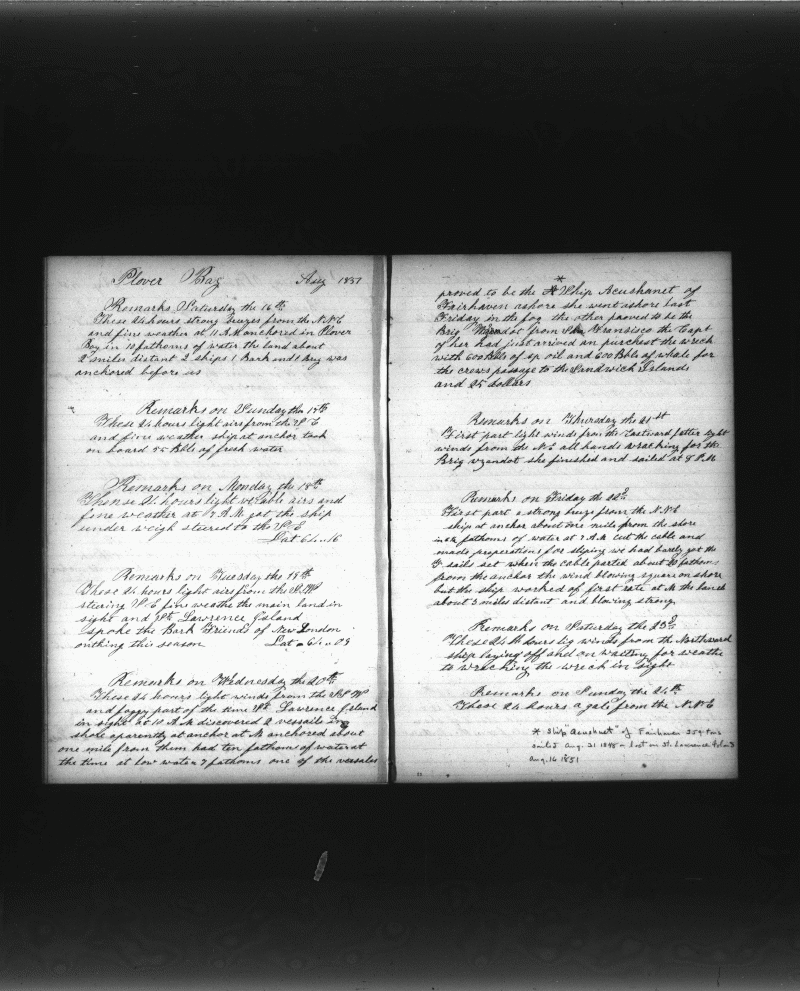 Plover Bay Aug 1851
Remarks Saturday the 16th
These 24 hours strong breezes from the N.N.E
and fine weather at 11 A.M anchored in Plover
Bay in 10 fathoms of water the land about
2 miles distant 2 ships 1 Bark and 1 brig was
anchored before us
Remarks on Sunday the 17th
These 24 hours light airs from the S.E
and fine weather ship at anchor took
on board 55 Bbls of fresh water
Remarks on Monday the 18th
These 24 hours light verable airs and
fine weather at 7 A.M. got the ship
under weigh steered to the S.E
Lat 64..16
Remarks on Tuesday the 19th
These 24 hours light airs from the S.W
stering S.E fine weathe the main land in
sight and St Lawrence Island
spoke the Bark Friends of New London
onthing this season Lat 64..09
Remarks on Wednesday the 20th
These 24 hours light winds from the S.S.W
and foggy part of the time St Lawrence Island
in sight at 10 A.M discovered 2 vessails
shore aparently at anchor at M anchored about
one mile from them had ten fathoms of water at
the time at low water 7 fathoms one of the versales
proved to be the * Ship Acushanet of
Fairhaven ashore she went ashore last
Friday in the fog the other prooved to be the
Brig Wiandot from San Fransisco the Capt
of her had just arived an purchest the wrech
with 600 Bbls of sp oil and 600 Bbls of whale for
the crews passage to the Sandwich Islands
and 25 dollars
Remarks on Thursday the 21st
First part light winds from the Eastward latter light
winds from the N.E all hands wracking for the
Brig wyandot she finished and sailed at 8 P.M
Remarks on Friday the 22d
First part a strong breeze from the N.N.E
ship at anchor about one mile from the shore
in fathoms of water at 7 A.M cut the cable and
made preperations for sliping we had barely got the
T sails set when the cable parted about 20 fathoms
from the anchor the wind blowing square on shore
but the ship worked of first rate at M the land
about 5 miles distant and blowing strong
Remarks on Saturday the 23d
These 24 Hours lig winds from the Northward
ship laying off and on waiting for weathe
to wracking the wrech in sight
Remarks on Sunday the 24th
These 24 hours a gale from the N.N.E
* Ship "Acushnet" of Fairhaven 359 tons
sailed Aug. 31 1845 - lost on St. Lawrence Island
Aug. 16 1851